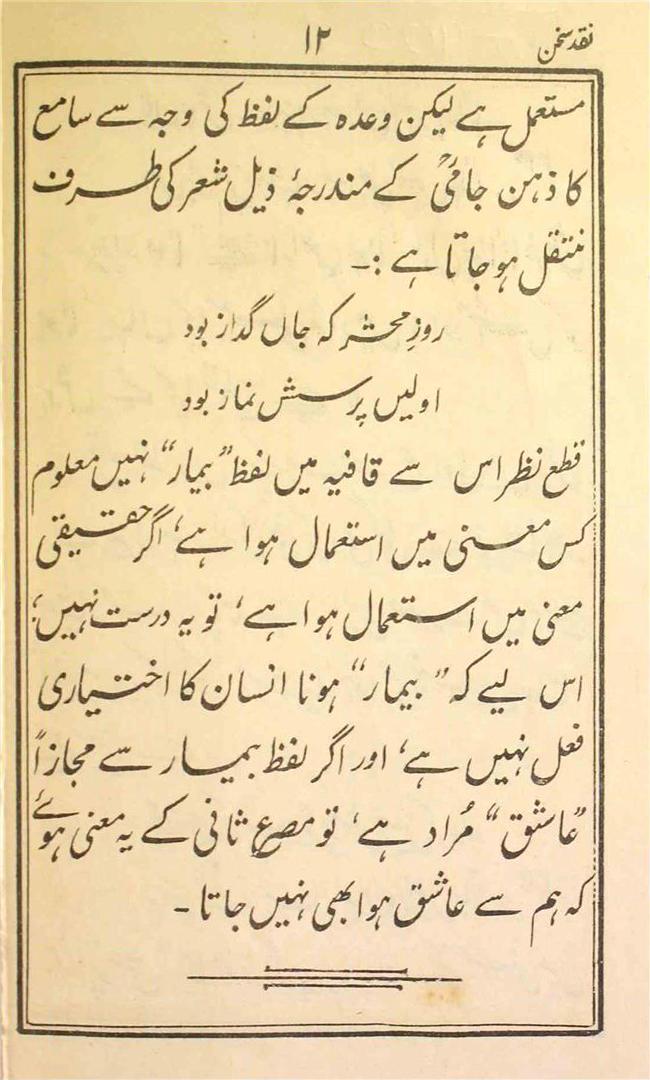 نقد سخن
۱۲
مستعمل ہے لیکن وعدہ کے لفظ کی وجہ سے سامع
کا ذہن جامیؒ کے مندرجۂ ذیل شعر کی طرف
منتقل ہو جاتا ہے :۔
روزِ محشر کہ جاں گداز بود
اولیں پرسش نماز بود
قطع نظر اس سے قافیہ میں لفظ "بیمار" نہیں معلوم
کس معنی میں استعمال ہوا ہے، اگر حقیقی
معنی میں استعمال ہوا ہے، تو یہ درست نہیں؛
اس لیے کہ "بیمار" ہونا انسان کا اختیاری
فعل نہیں ہے، اور اگر لفظ بیمار سے مجازاً
"عاشق" مُراد ہے، تو مصرعِ ثانی کے یہ معنی ہوئے
کہ ہم سے عاشق ہوا بھی نہیں جاتا۔